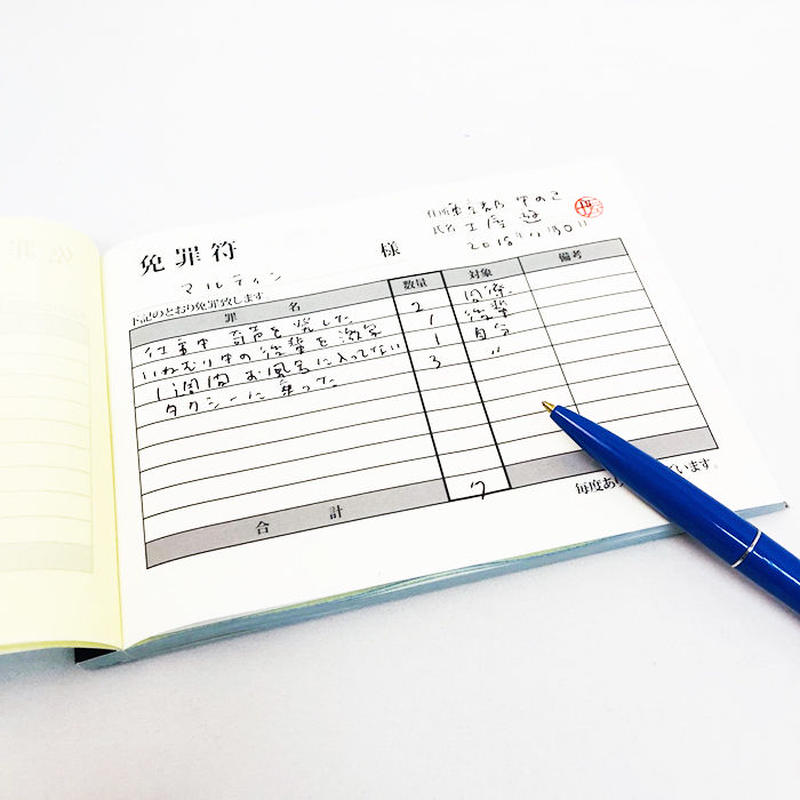 免罪符
様
住所 東京都
氏名
2018年
マルティン
下記のとおり免罪致します
罪名 数量 対象 備考
仕事中奇声を発した 2 同僚
いねむり中の後輩を激写 1 後輩
1週間お風呂に入ってない 1 自分
タクシーに乗った 3 〃
合計 7
毎度あり います。